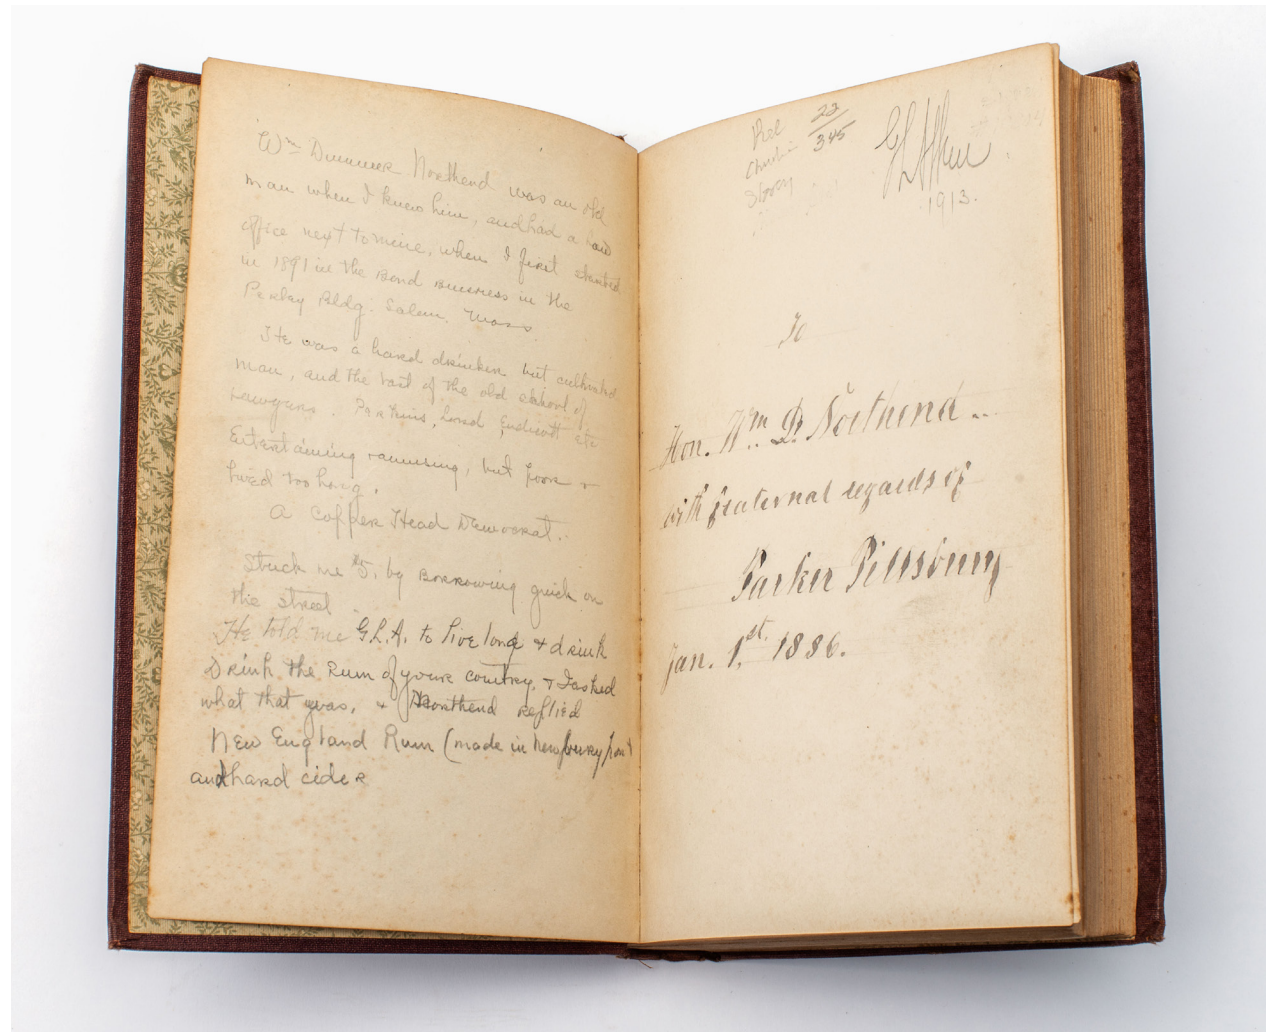 Wm Dummer Northend was an old
man when I knew him, and had a law
office next to mine, when I first started
in 1891 in the Bond Business in the
Perley Bldg. Salem. Mass
He was a hard drinker but cultivated
man, and the last of the old school of
Lawyers. Perkins, Lord, Endicott etc
Entertaining + amusing, but poor +
lived too long.
A Copper Head Democrat.
Stuck me $5, by Borrowing quick on
the street
He told me G.L.A. to live long + drink
Drink the Rum of your country, + I asked
what that was, + Northend replied
New England Rum (made in Newburyport
and hard cider
22
345
1913.
To
Hon. Wm. D. Northend
with fraternal regards of
Parker Pillsbury
Jan. 1st. 1886.